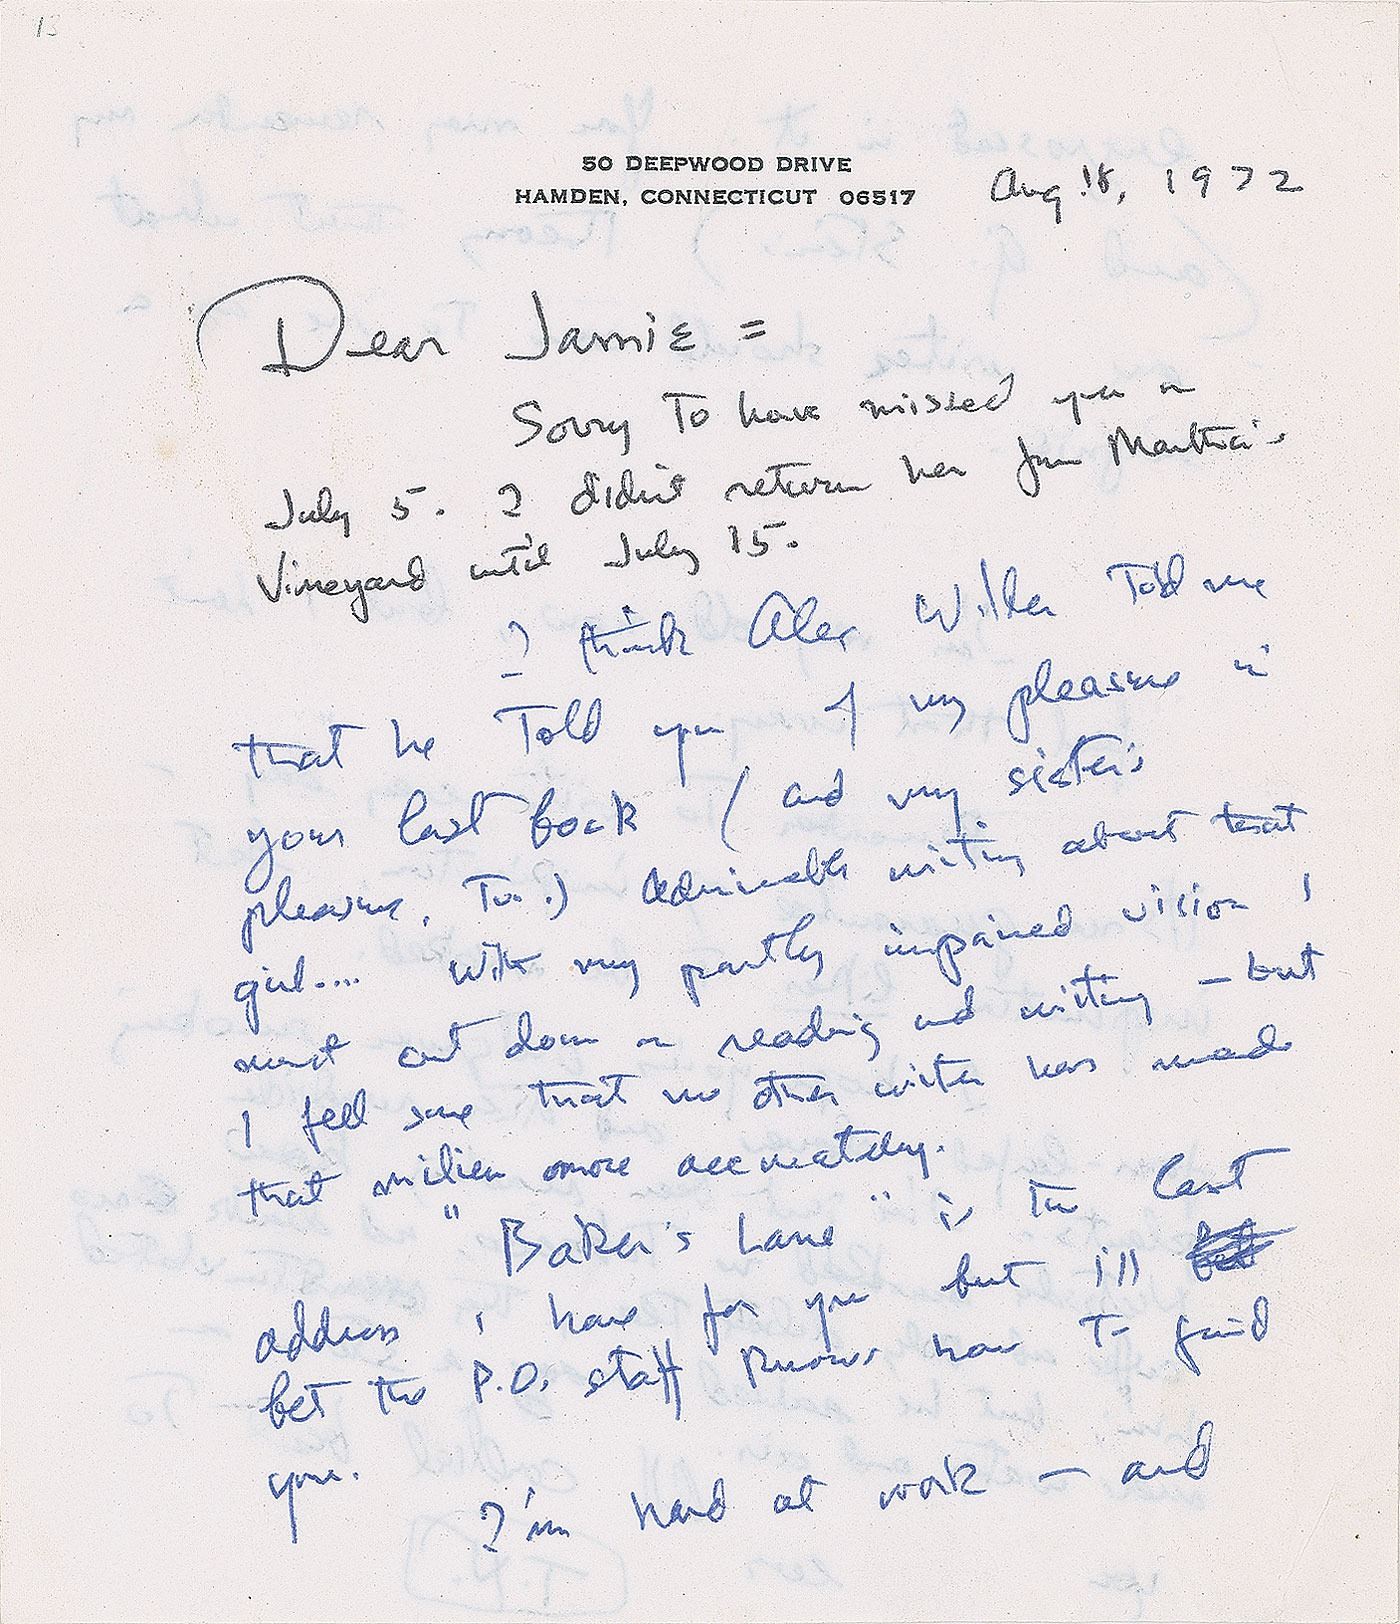 13
50 DEEPWOOD DRIVE
HAMDEN, CONNECTICUT 06517
Aug 18, 1972
Dear Jamie =
Sorry To have missed you on
July 5. I didn't return her from Martha's
Vineyard until July 15.
I think Alec Wilder Told me
that he Told you of my pleasure in
your last book (and my sister's
pleasure, Too.) Admirable writing about that
girl.... With my partly impaired vision I
must cut down on reading and writing – but
I feel sure that no other writer has made
that milieu more accurately.
"Baker's Lane" is the last
address I have for you but I'll
bet the P.O. staff knows how To find
you.
I'm hard at work – and